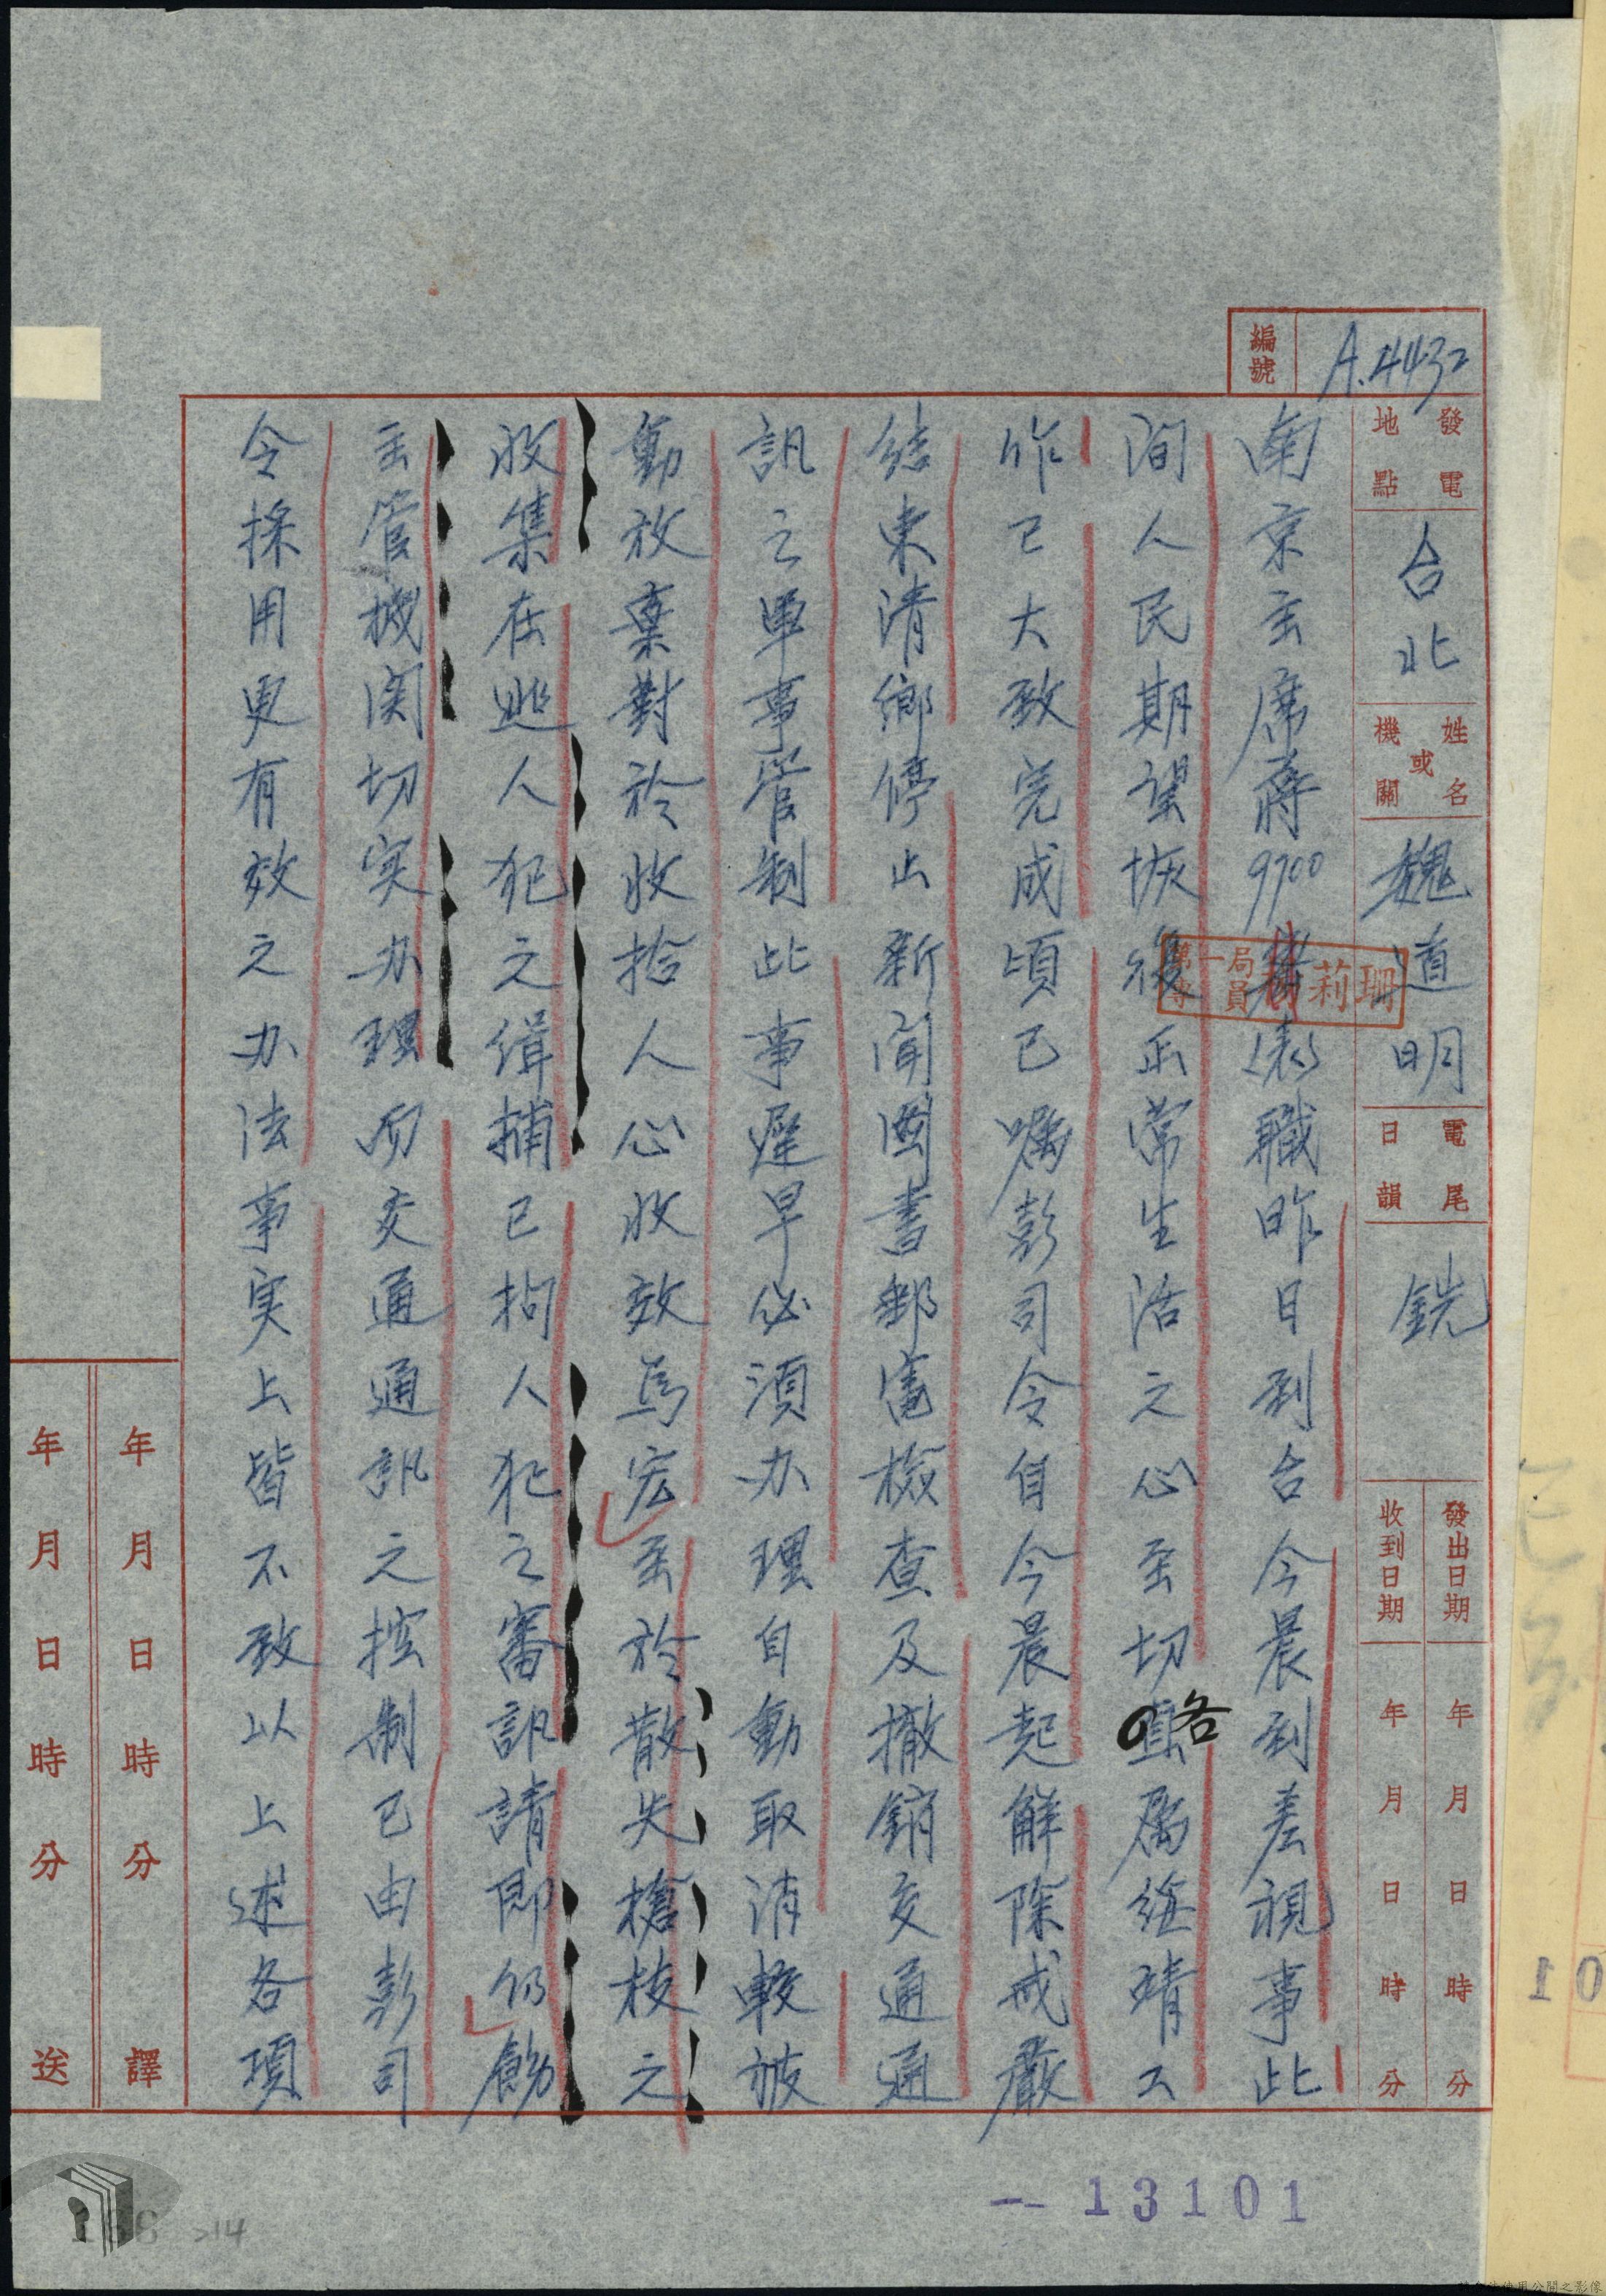 編號
A.4432
發電地點
台北
姓名或機關
魏道明
電尾日韻
銑
發出日期 年 月 日 時 分
收到日期 年 月 日 時 分
第一局
專員
莉珊
南京主席蔣9700 職昨日到台今晨到差視事此
间人民期望恢復正常生活之心至切各縣属綏靖工
作已大致完成頃已嘱彭司令自今晨起解除戒嚴
结束清鄉停止新闻圖書郵電檢查及撤銷交通通
訊之軍事管制此事遲早必須办理自動取消較被
動放棄對於收拾人心收效為宏至於散失槍枝之
收集在逃人犯之缉捕已拘人犯之審訊請即仍飭
主管機関切实办理而交通通訊之控制已由彭司
令採用更有效之办法事实上皆不致以上述各項
年 月 日 時 分 譯
年 月 日 時 分 送
13101
214
10